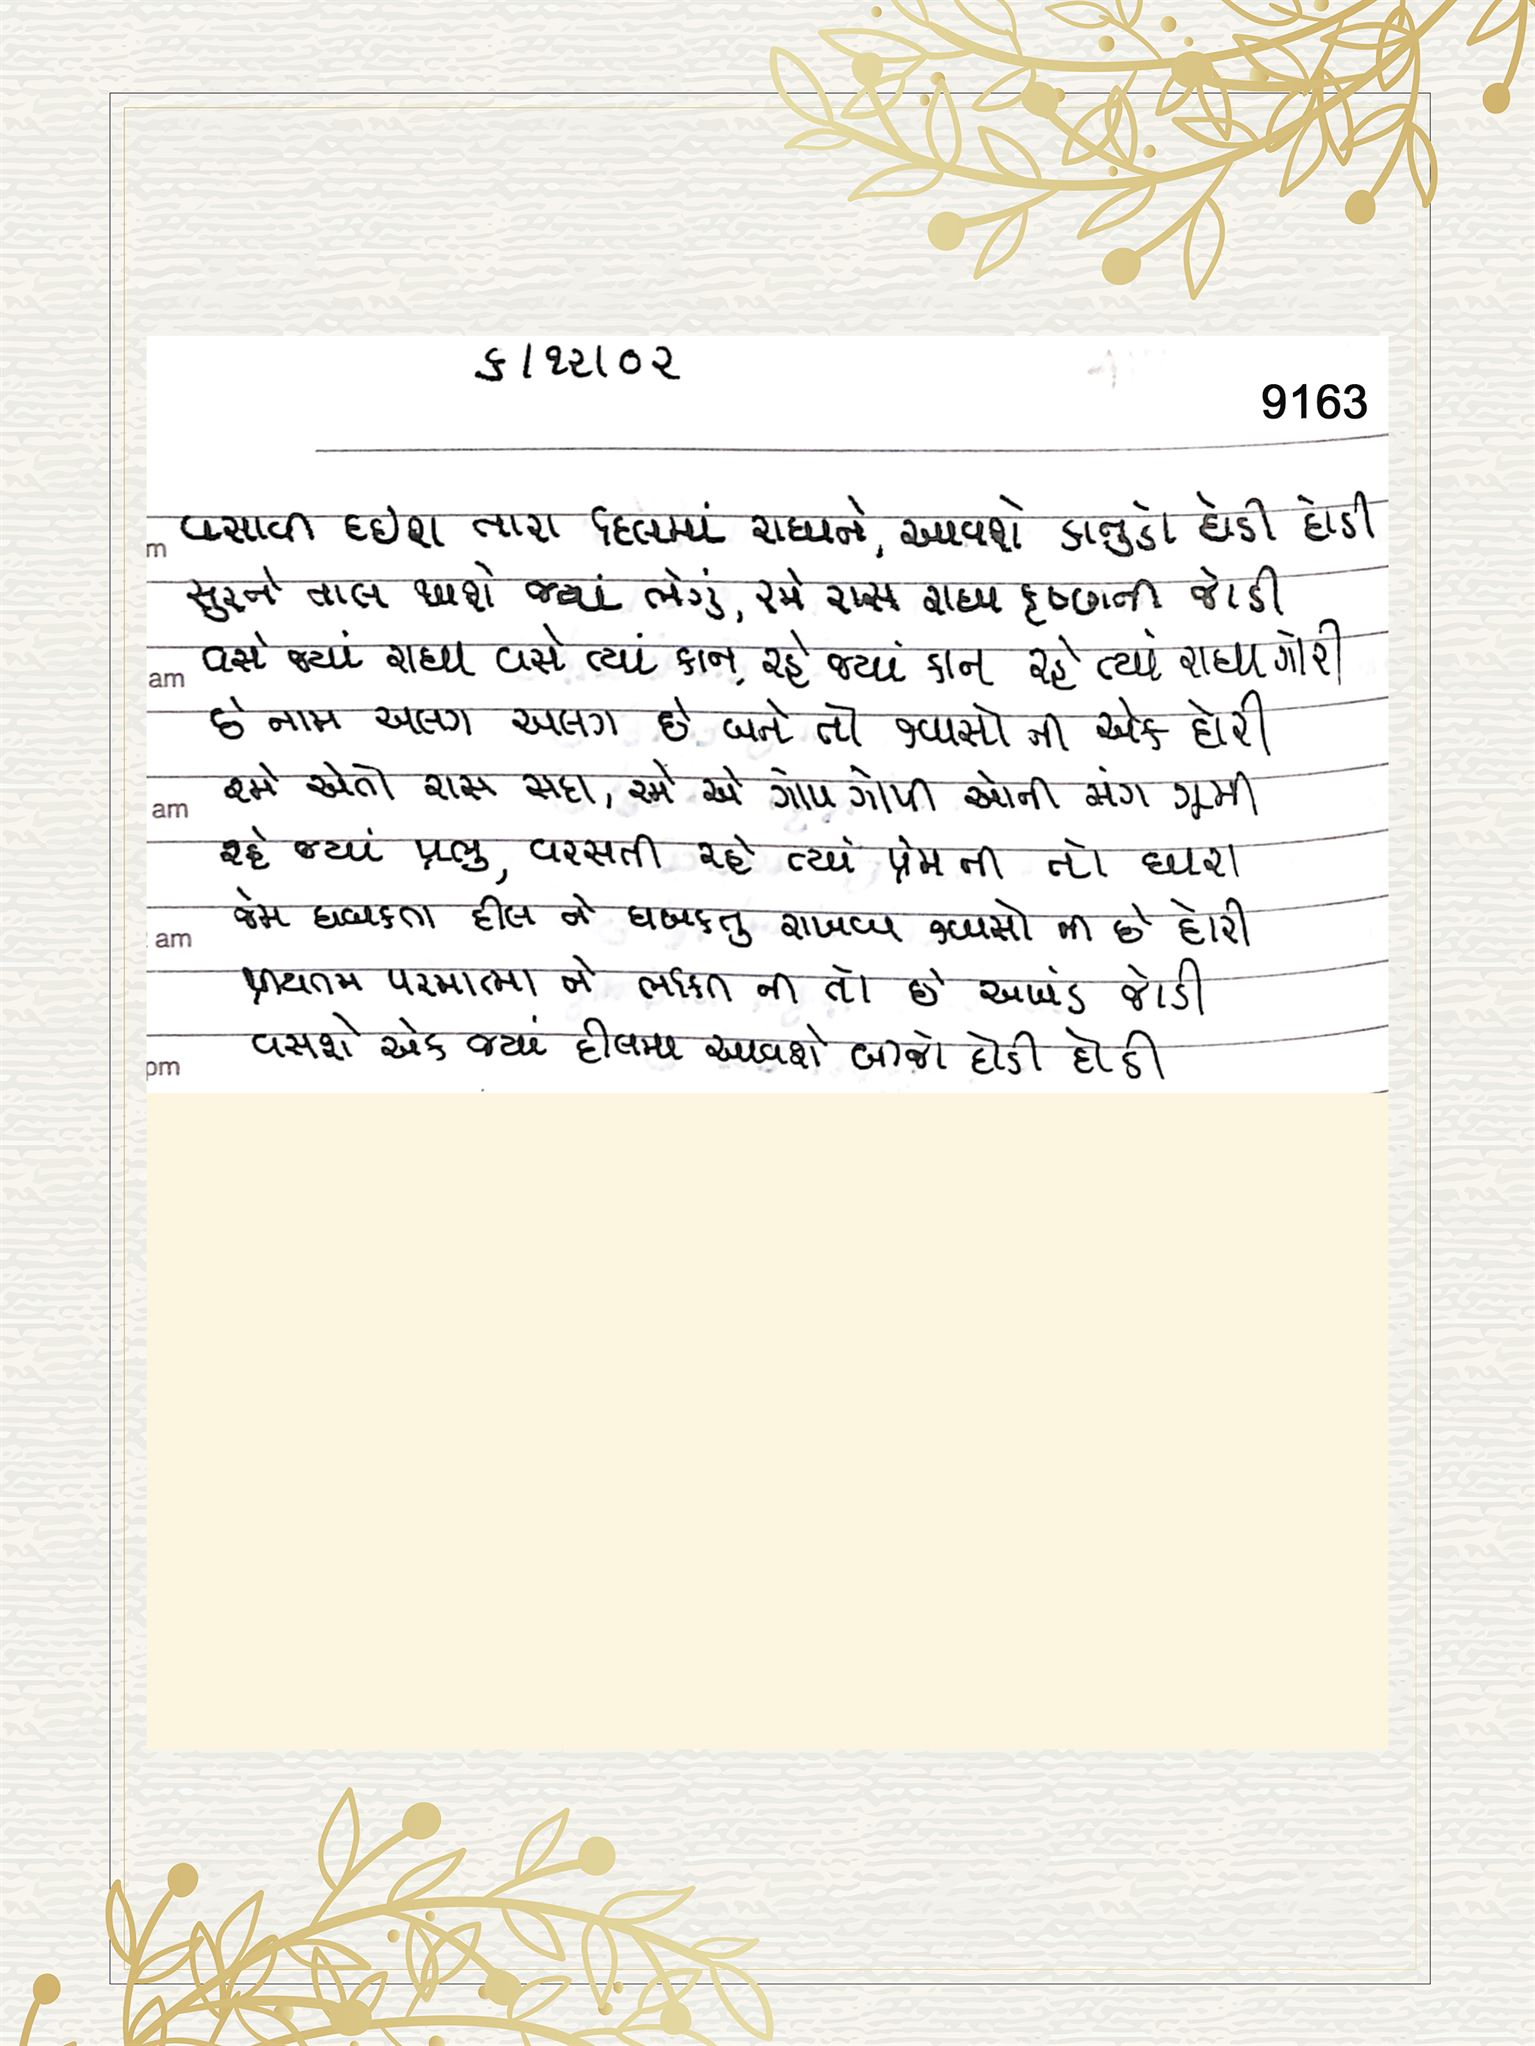 ૬/૧૨/૦૨
9163
વસાવી દઇશ તારા દિલમાં રાધાને, આવશે કાનુડો દોડી દોડી
m
સુરને તાલ થાશે જ્યાં ભેગું, રમે રાસ રાધા કૃષ્ણની જોડી
વસે જ્યાં રાધા વસે ત્યાં કાન, રહે જ્યાં કાન રહે ત્યાં રાધા ગોરી
am
છે નામ અલગ અલગ છે બને તો શ્વાસો ની એક દોરી
રમે એતો રાસ સદા, રમે એ ગોપ ગોપી ઓની સંગ ઝૂમી
am
રહે જ્યાં પ્રભુ, વરસતી રહે ત્યાં પ્રેમ ની તો ધારા
જેમ ધબકતા દીલ ને ધબકતુ રાખવા શ્વાસો ની છે દોરી
am
પ્રીયતમ પરમાત્મા ને ભક્તિ ની તો છે અખંડ જોડી
વસશે એક જ્યાં દીલમા આવશે બીજો દોડી દોડી
pm